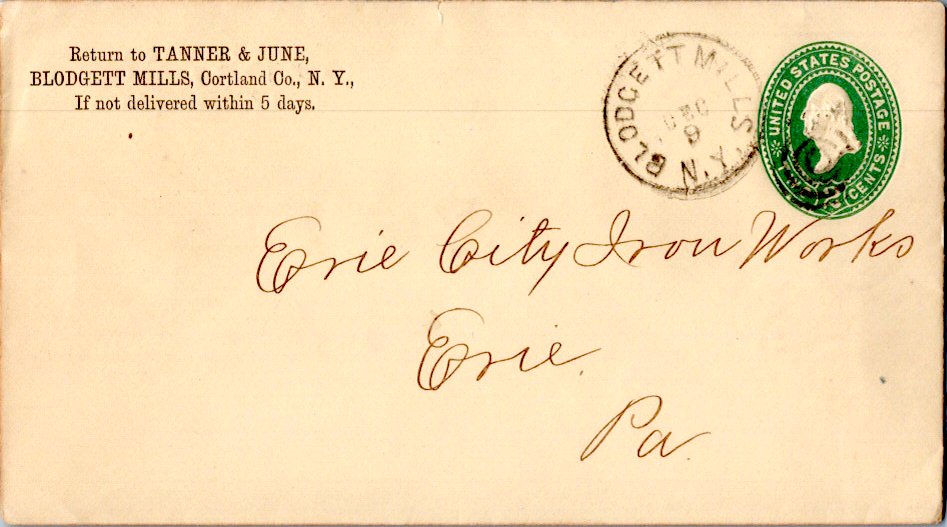 Return to TANNER & JUNE,
BLODGETT MILLS, Cortland Co., N. Y.,
If not delivered within 5 days.
BLODGETT MILLS N.Y.
DEC
9
UNITED STATES POSTAGE
CENTS
Erie City Iron Works
Erie.
Pa.